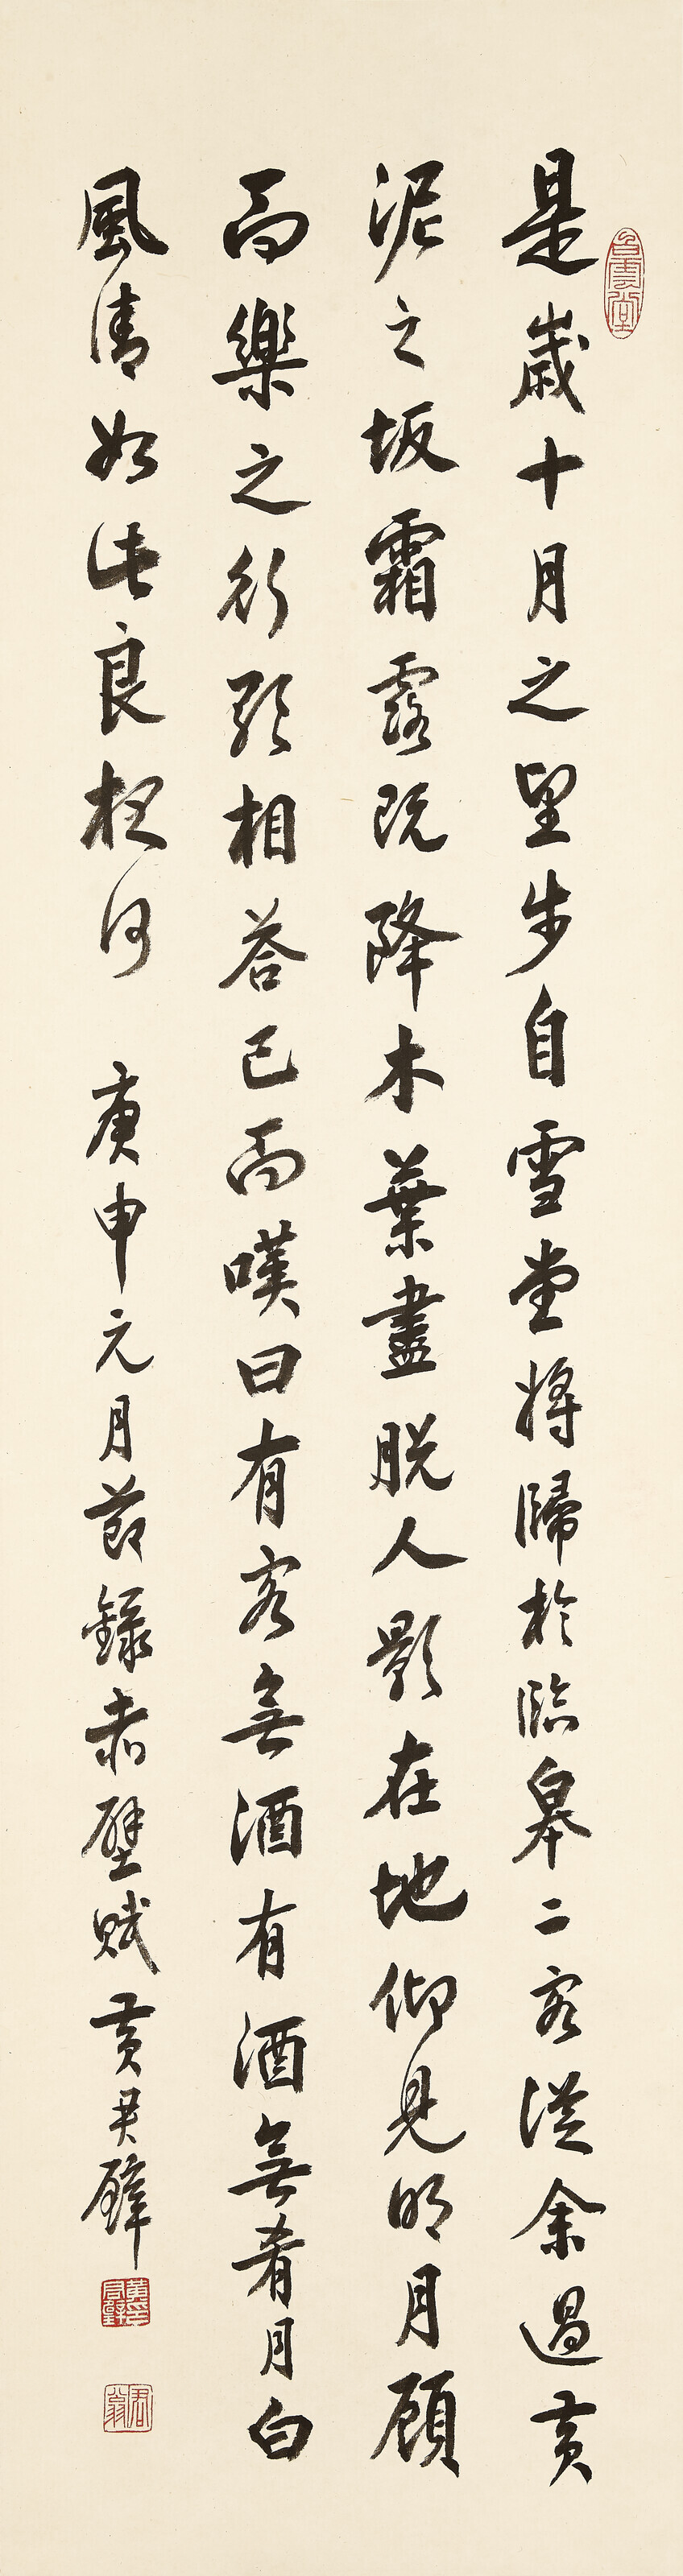 白雲堂
是歲十月之望步自雪堂將歸於臨皋二客從余過黃
泥之坂霜露既降木葉盡脫人影在地仰見明月顧
而樂之行歌相答已而嘆曰有客無酒有酒無肴月白
風清如此良夜何 庚申元月節錄赤壁賦 黃君璧
黃君璧印
君翁